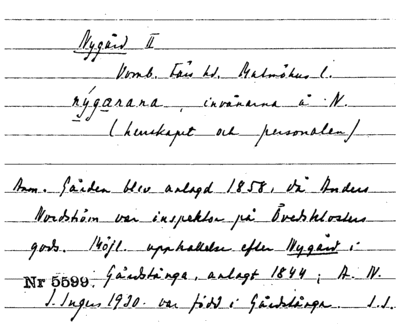 Nygård II
Vomb. Färs hd. Malmöhus l.
nýgarana, invånarna å N.
(herrskapet och personalen)
Anm. Gården blev anlagd 1858, då Anders
Nordström var inspektor på Övedsklosters
gods. Möjl. uppkallelse efter Nygård i
Nr 5599. Gårdstånga, anlagt 1844; A. N.
S. Inger 1930. var född i Gårdstånga. I.I.